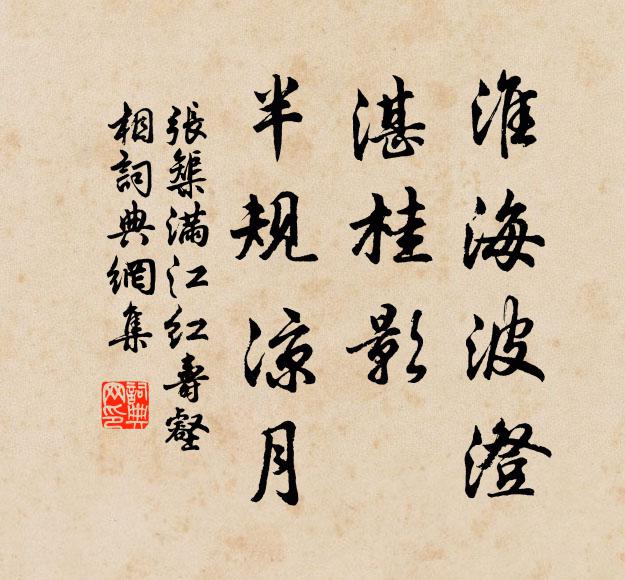 淮海波澄
湛桂影
半規凉月
張榘滿江紅壽壑
相詞典網集
詞典網印